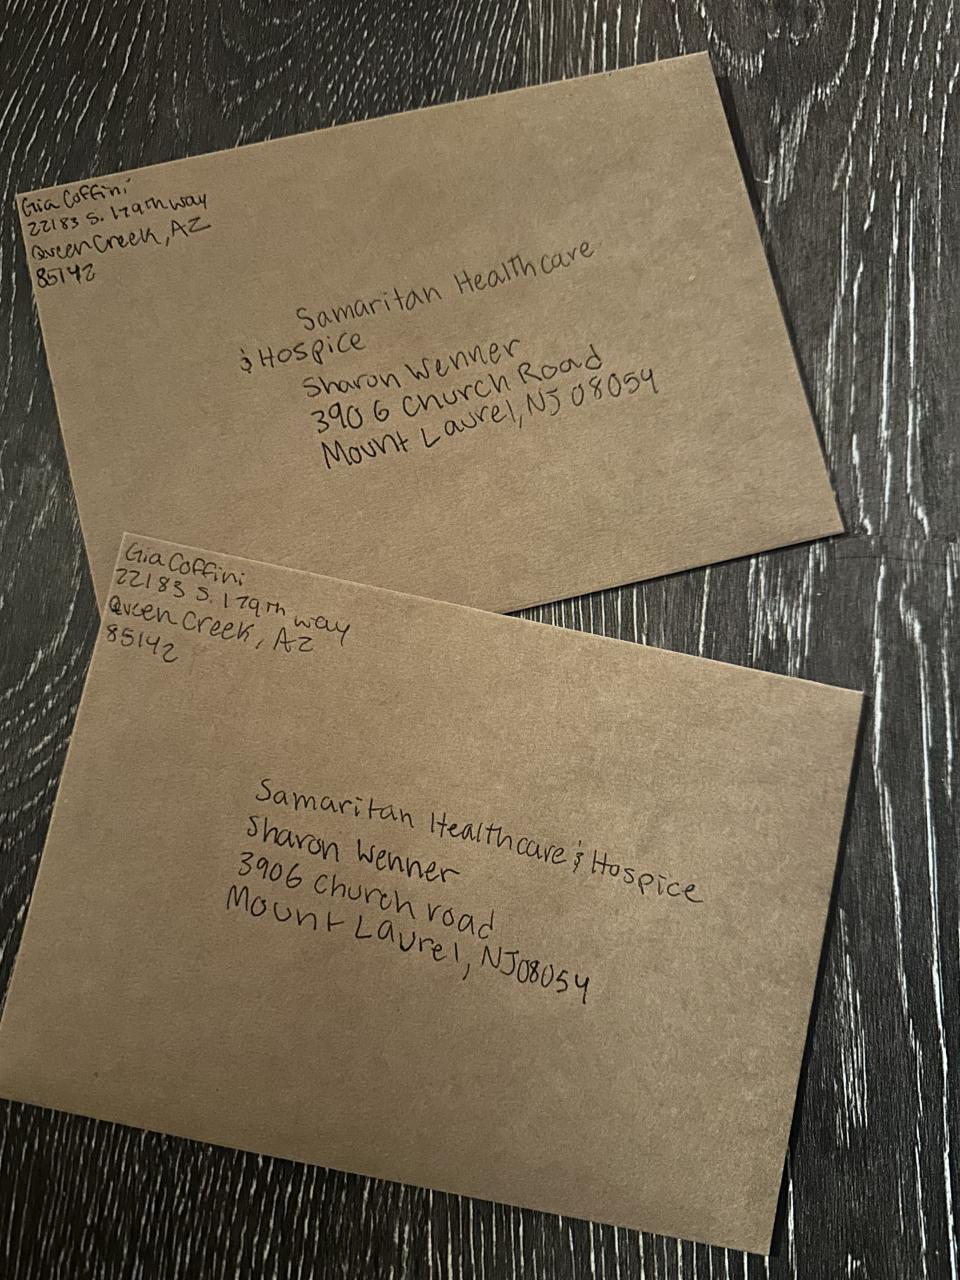 Gia Coffini
22183 S. 179th Way
Queen Creek, AZ
85142
Samaritan Healthcare
& Hospice
Sharon Wenner
3906 Church Road
Mount Laurel, NJ 08054
Gia Coffini
22183 S. 179th way
Queen Creek, AZ
85142
Samaritan Healthcare & Hospice
Sharon Wenner
3906 Church road
Mount Laurel, NJ 08054